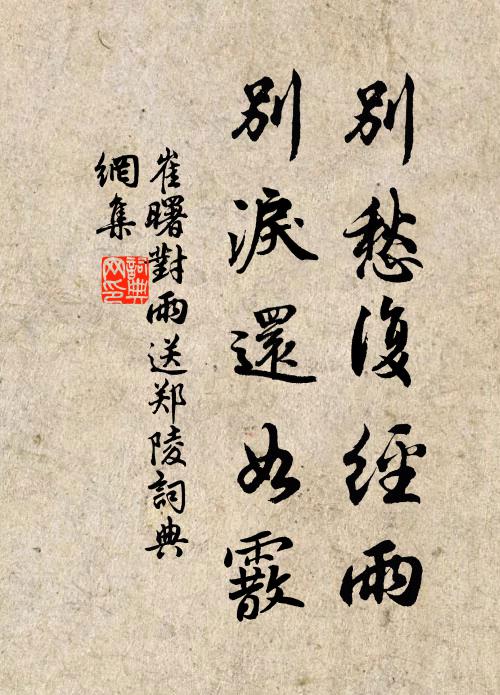 別愁復經雨
別淚還如霰
崔曙對雨送郑陵詞典
網集
詞典
网印